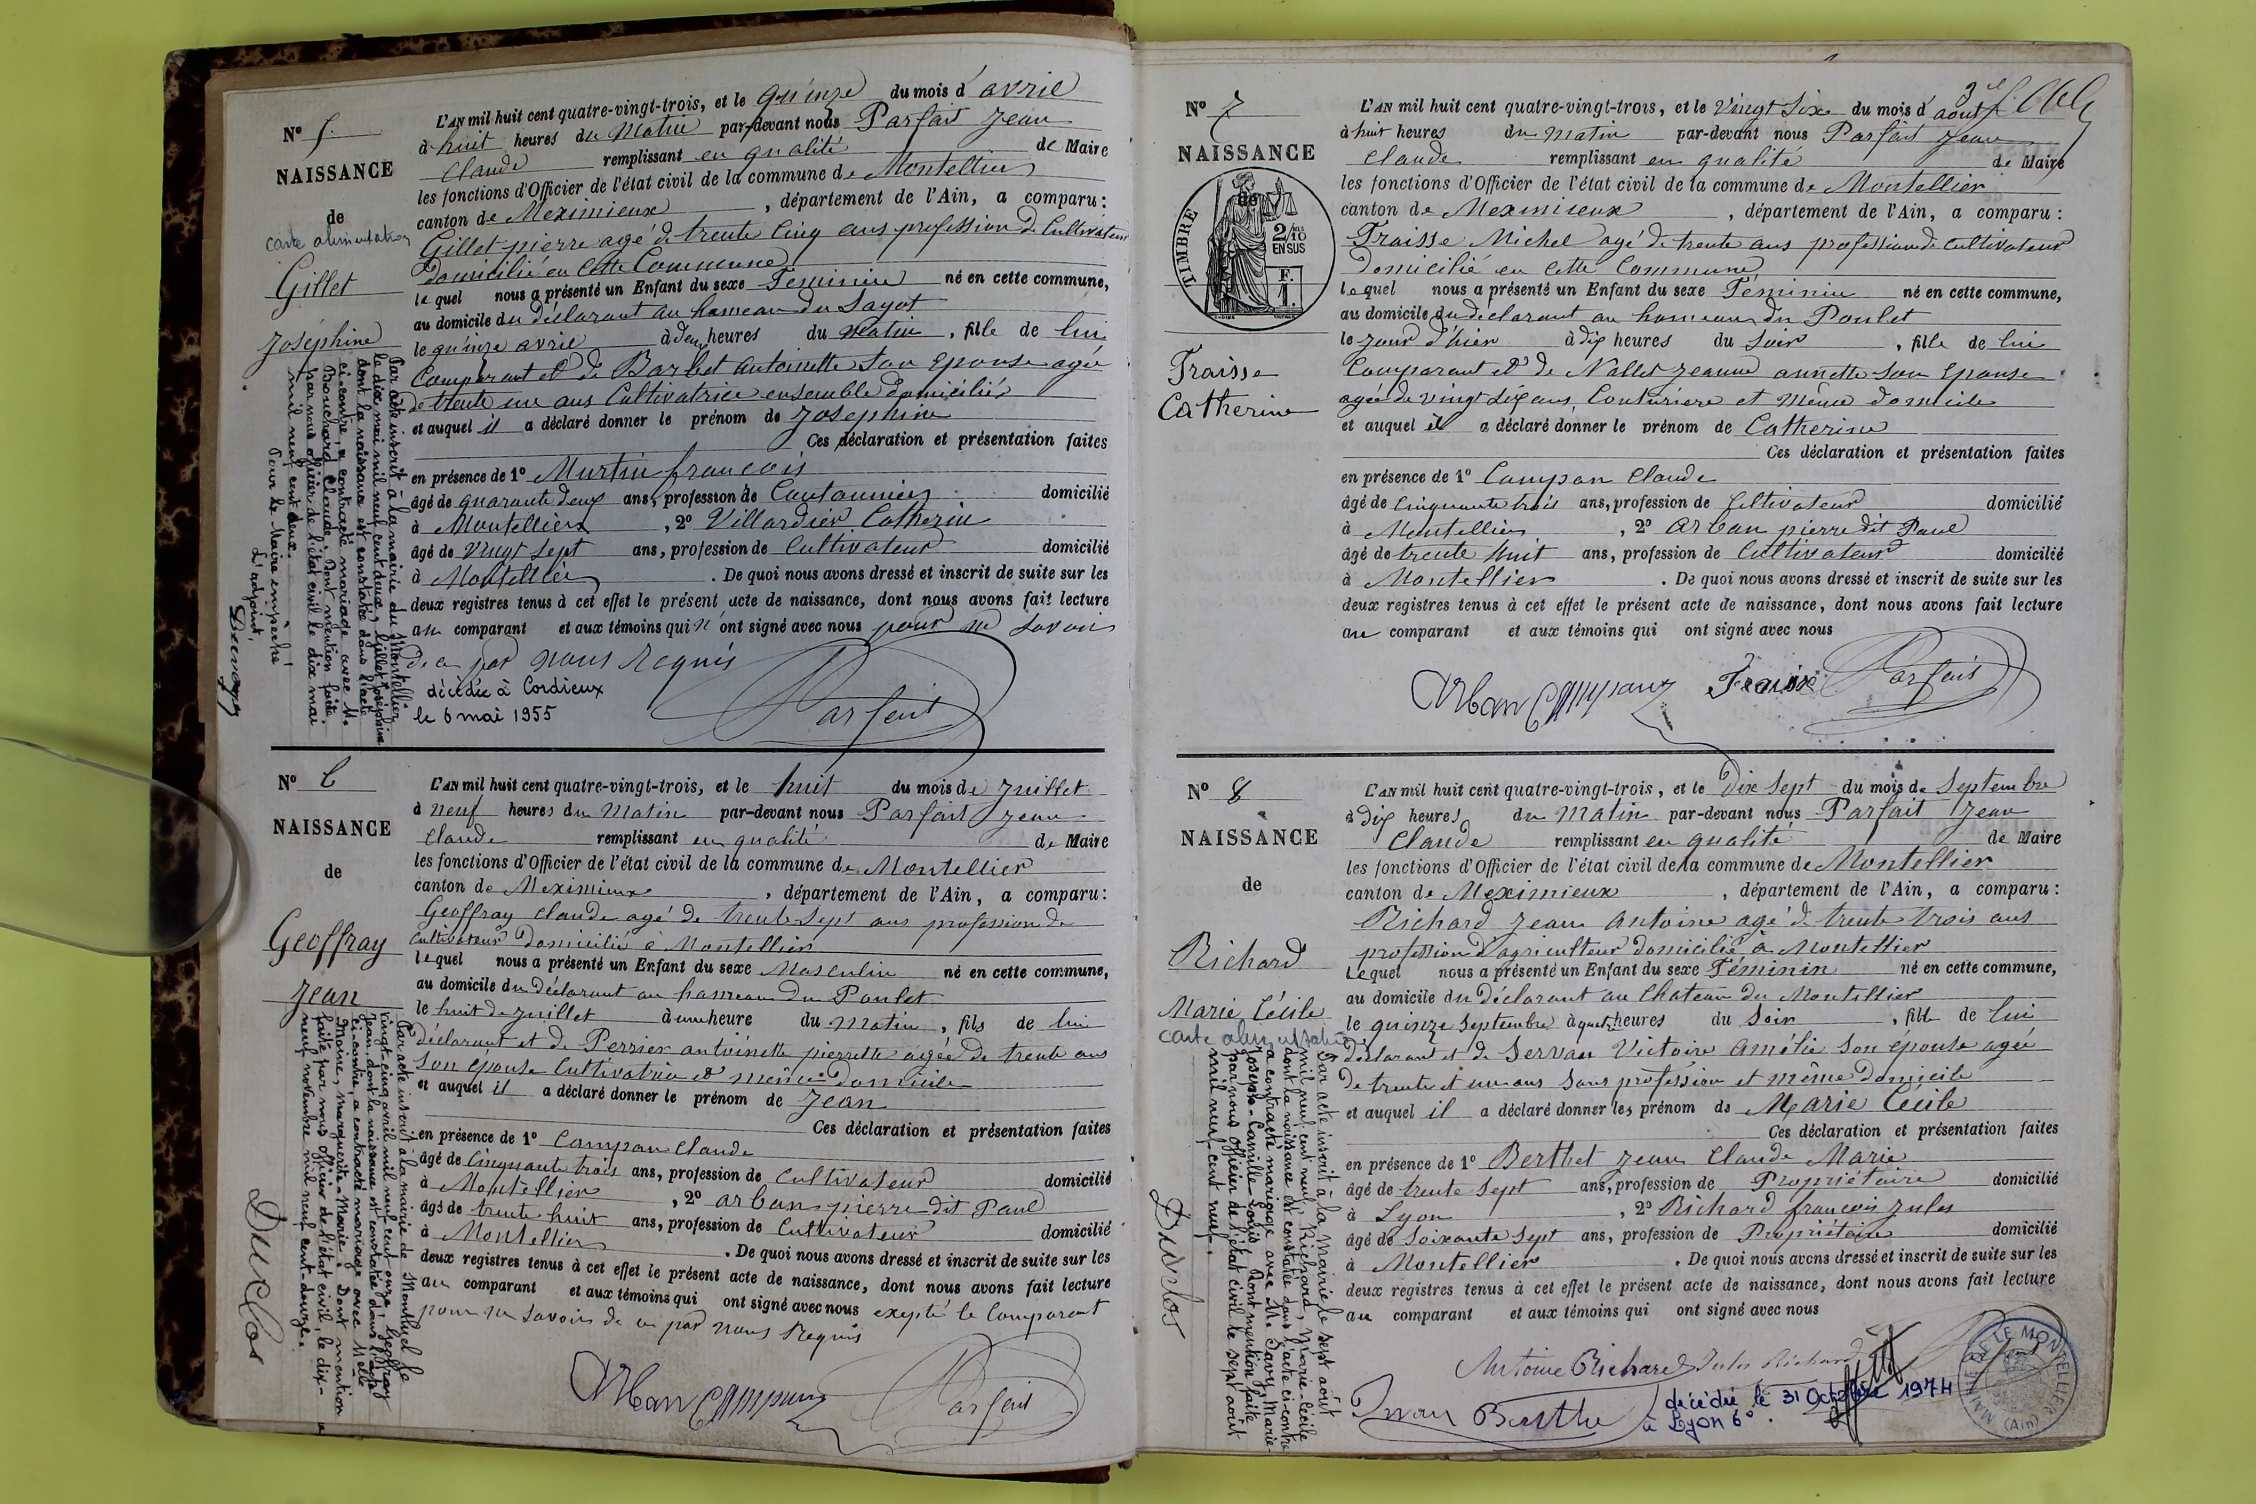 N° 5
NAISSANCE
de
carte alimentation
Gillet
Joséphine
L'AN mil huit cent quatre-vingt-trois, et le quinze du mois d'avril
à huit heures du Matin par-devant nous Parfait Jean
Claude remplissant en qualité de Maire
les fonctions d'Officier de l'état civil de la commune de Montellier
canton de Meximieux, département de l'Ain, a comparu :
Gillet pierre agé de trente cinq ans profession de Cultivateur
domicilié en cette Commune
lequel nous a présenté un Enfant du sexe Féminin né en cette commune,
au domicile du déclarant au hameau du Sayot
le quinze avril à deux heures du matin, fille de lui
Comparant et de Barbet antoinette son Epouse agée
de trente un ans Cultivatrice ensemble domiciliés
et auquel il a déclaré donner le prénom de Joséphine
Ces déclaration et présentation faites
en présence de 1° Murtin françois
âgé de quarante deux ans, profession de Cantonnier domicilié
à Montellier, 2° Villardier Catherin
âgé de vingt sept ans, profession de Cultivateur domicilié
à Montellier. De quoi nous avons dressé et inscrit de suite sur les
deux registres tenus à cet effet le présent acte de naissance, dont nous avons fait lecture
au comparant et aux témoins qui n'ont signé avec nous pour ne savoir
de ce par nous requis
décédée à Cordieux
le 6 mai 1955
Parfait
Par acte inscrit à la mairie du Montellier
le dix mai mil neuf cent deux, Gillet Joséphine
dont la naissance est constatée dans l'acte
ci-contre, a contracté mariage avec M.
Bouchard Claude. Dont mention faite
par nous officier de l'état civil le dix mai
mil neuf cent deux.
Pour le Maire empêché
L'adjoint,
N° 6
NAISSANCE
de
Geoffray
Jean
L'AN mil huit cent quatre-vingt-trois, et le huit du mois de Juillet
à neuf heures du Matin par-devant nous Parfait Jean
Claude remplissant en qualité de Maire
les fonctions d'Officier de l'état civil de la commune de Montellier
canton de Meximieux, département de l'Ain, a comparu :
Geoffray Claude agé de trente sept ans profession de
Cultivateur domicilié à Montellier
lequel nous a présenté un Enfant du sexe Masculin né en cette commune,
au domicile du déclarant au hameau du Poulet
le huit de juillet à une heure du Matin, fils de lui
déclarant et de Perrier antoinette pierrette agée de trente ans
son épouse Cultivatrice et même domicile
et auquel il a déclaré donner le prénom de Jean
Ces déclaration et présentation faites
en présence de 1° Campan Claude
âgé de Cinquante trois ans, profession de Cultivateur domicilié
à Montellier, 2° arban pierre dit Paul
âgé de trente huit ans, profession de Cultivateur domicilié
à Montellier. De quoi nous avons dressé et inscrit de suite sur les
deux registres tenus à cet effet le présent acte de naissance, dont nous avons fait lecture
au comparant et aux témoins qui ont signé avec nous exepté le Comparant
pour ne savoir de ce par nous Requis
Arban Campan Parfait
Par acte inscrit à la mairie de Montluel le
vingt cinq avril mil neuf cent onze, Geoffray
Jean, dont la naissance est constatée dans l'acte
ci-contre, a contracté mariage avec Melle
Moine, Marguerite-Marie. Dont mention
faite par nous officier de l'état civil, le dix-
neuf novembre mil neuf cent-douze.
Duclos
3e f.
N° 7
NAISSANCE
de
TIMBRE
2/10 EN SUS
F. 1.
Fraisse
Catherine
L'AN mil huit cent quatre-vingt-trois, et le Vingt Six du mois d'août
à huit heures du matin par-devant nous Parfait Jean
Claude remplissant en qualité de Maire
les fonctions d'Officier de l'état civil de la commune de Montellier
canton de Meximieux, département de l'Ain, a comparu :
Fraisse Michel agé de trente ans profession de cultivateur
Domicilié en cette Commune
lequel nous a présenté un Enfant du sexe Féminin né en cette commune,
au domicile du déclarant au hameau du Poulet
le jour d'hier à dix heures du Soir, fille de lui
Comparant et de Nallet Jeanne annette son Epouse
agée de vingt six ans, Couturière et même domicile
et auquel il a déclaré donner le prénom de Catherine
Ces déclaration et présentation faites
en présence de 1° Campan Claude
âgé de Cinquante trois ans, profession de Cultivateur domicilié
à Montellier, 2° arban pierre dit Paul
âgé de trente huit ans, profession de Cultivateur domicilié
à Montellier. De quoi nous avons dressé et inscrit de suite sur les
deux registres tenus à cet effet le présent acte de naissance, dont nous avons fait lecture
au comparant et aux témoins qui ont signé avec nous
Arban Campan Fraisse Parfait
N° 8
NAISSANCE
de
Richard
Marie Cécile
carte alimentation
L'AN mil huit cent quatre-vingt-trois, et le Dix Sept du mois de Septembre
à dix heures du Matin par-devant nous Parfait Jean
Claude remplissant en qualité de Maire
les fonctions d'Officier de l'état civil de la commune de Montellier
canton de Meximieux, département de l'Ain, a comparu :
Richard Jean Antoine agé de trente trois ans
profession d'agriculteur domicilié à Montellier
Lequel nous a présenté un Enfant du sexe Féminin né en cette commune,
au domicile du déclarant au Chateau du Montellier
le quinze Septembre à quatre heures du Soir, fille de lui
déclarant et de Servan Victoire Amélie son épouse agée
de trente et un ans Sans profession et même domicile
et auquel il a déclaré donner les prénom de Marie Cécile
Ces déclaration et présentation faites
en présence de 1° Berthet Jean Claude Marie
âgé de trente sept ans, profession de Propriétaire domicilié
à Lyon, 2° Richard françois Jules
âgé de Soixante Sept ans, profession de Propriétaire domicilié
à Montellier. De quoi nous avons dressé et inscrit de suite sur les
deux registres tenus à cet effet le présent acte de naissance, dont nous avons fait lecture
au comparant et aux témoins qui ont signé avec nous
Antoine Richard Jules Richard
décédée le 31 Octobre 1974
à Lyon 6°.
MAIRIE DE LE MONTELLIER
(Ain)
Par acte inscrit à la Mairie le sept août
mil neuf cent neuf, Richard, Marie-Cécile
dont la naissance est constatée dans l'acte ci-contre
a contracté mariage avec Mr Savoy, Marie-
Joseph-Camille-Louis. Dont mention faite
par nous officier de l'état civil le sept août
mil neuf cent neuf.
Duclos